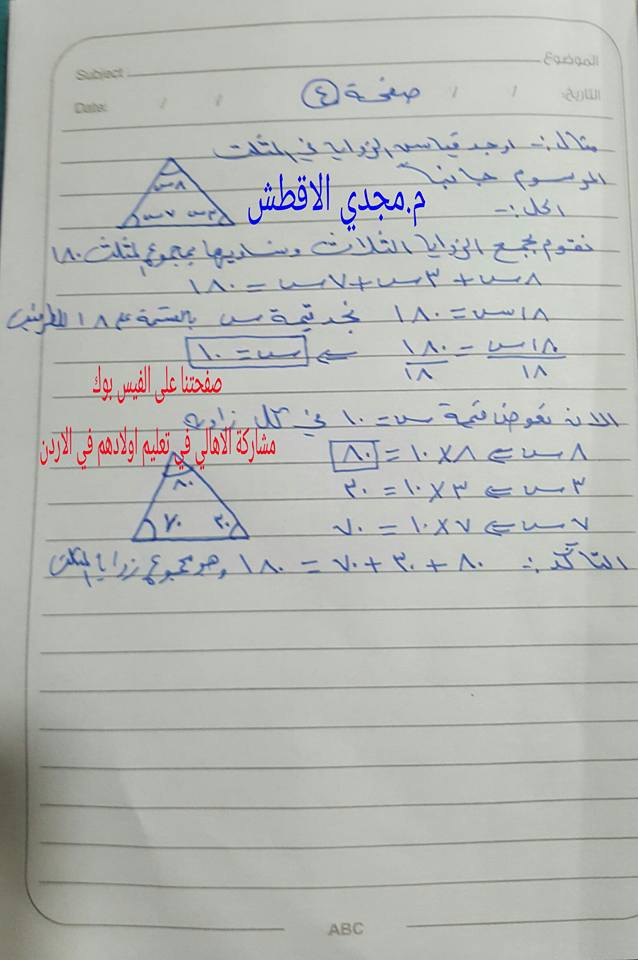 الموضوع:
Subject:
التاريخ: / /
Date: / /
صفحة ٤
مثال:- اوجد قياس الزوايا في المثلث
المرسوم جانباً
٨س
٧س ٣س
م.مجدي الاقطش
الحل:-
نقوم بجمع الزوايا الثلاث ونساويها بمجموع المثلث ١٨٠
٨س + ٣س + ٧س = ١٨٠
١٨س = ١٨٠ نجد قيمة س بالقسمة على ١٨ للطرفين
١٨س/١٨ = ١٨٠/١٨ ⇐ س = ١٠
صفحتنا على الفيس بوك
الان نعوض قيمة س = ١٠ في كل زاوية
مشاركة الاهالي في تعليم اولادهم في الاردن
٨س ⇐ ٨ × ١٠ = ٨٠
٣س ⇐ ٣ × ١٠ = ٣٠
٧س ⇐ ٧ × ١٠ = ٧٠
٨٠
٧٠ ٣٠
التأكد:- ٨٠ + ٣٠ + ٧٠ = ١٨٠ وهو مجموع زوايا المثلث
ABC